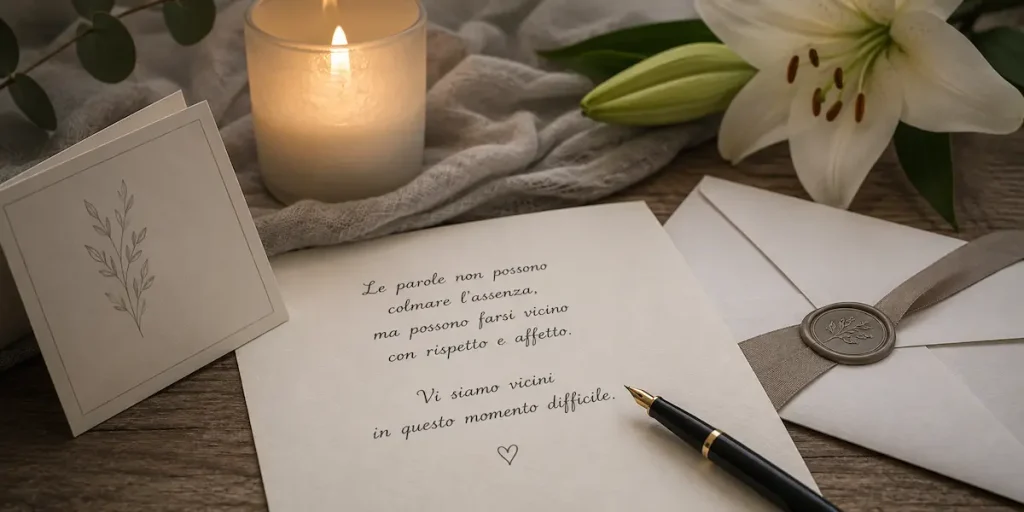 Le parole non possono
colmare l'assenza,
ma possono farsi vicino
con rispetto e affetto.
Vi siamo vicini
in questo momento difficile.